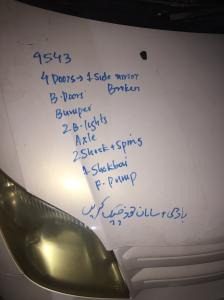 9543
4 Doors → 1 Side mirror
B. Doors Broken
Bumper
2. B. lights
Axle
2 Shock + Spring
F. Pump
باڈی + سامان خود چیک کریں